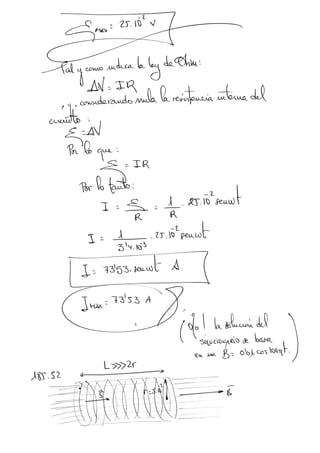 Ɛmax: 25.10² V.
Tal y como indica la ley de Ohm:
ΔV = IR
, y, considerando nula la resistencia interna del
circuito:
Ɛ = ΔV
Por lo que:
Ɛ = IR
Por lo tanto:
I = Ɛ/R = 1/R · 25.10⁻² senωt
I = 1/3'4.10⁻³ · 25.10⁻² senωt
I = 73'53.senωt A.
Imax: 73'53 A
(Ojo! la solución del
solucionario se basa
en un B = 0'01 cos 100πt.)
L >>> 2r
185.52
B